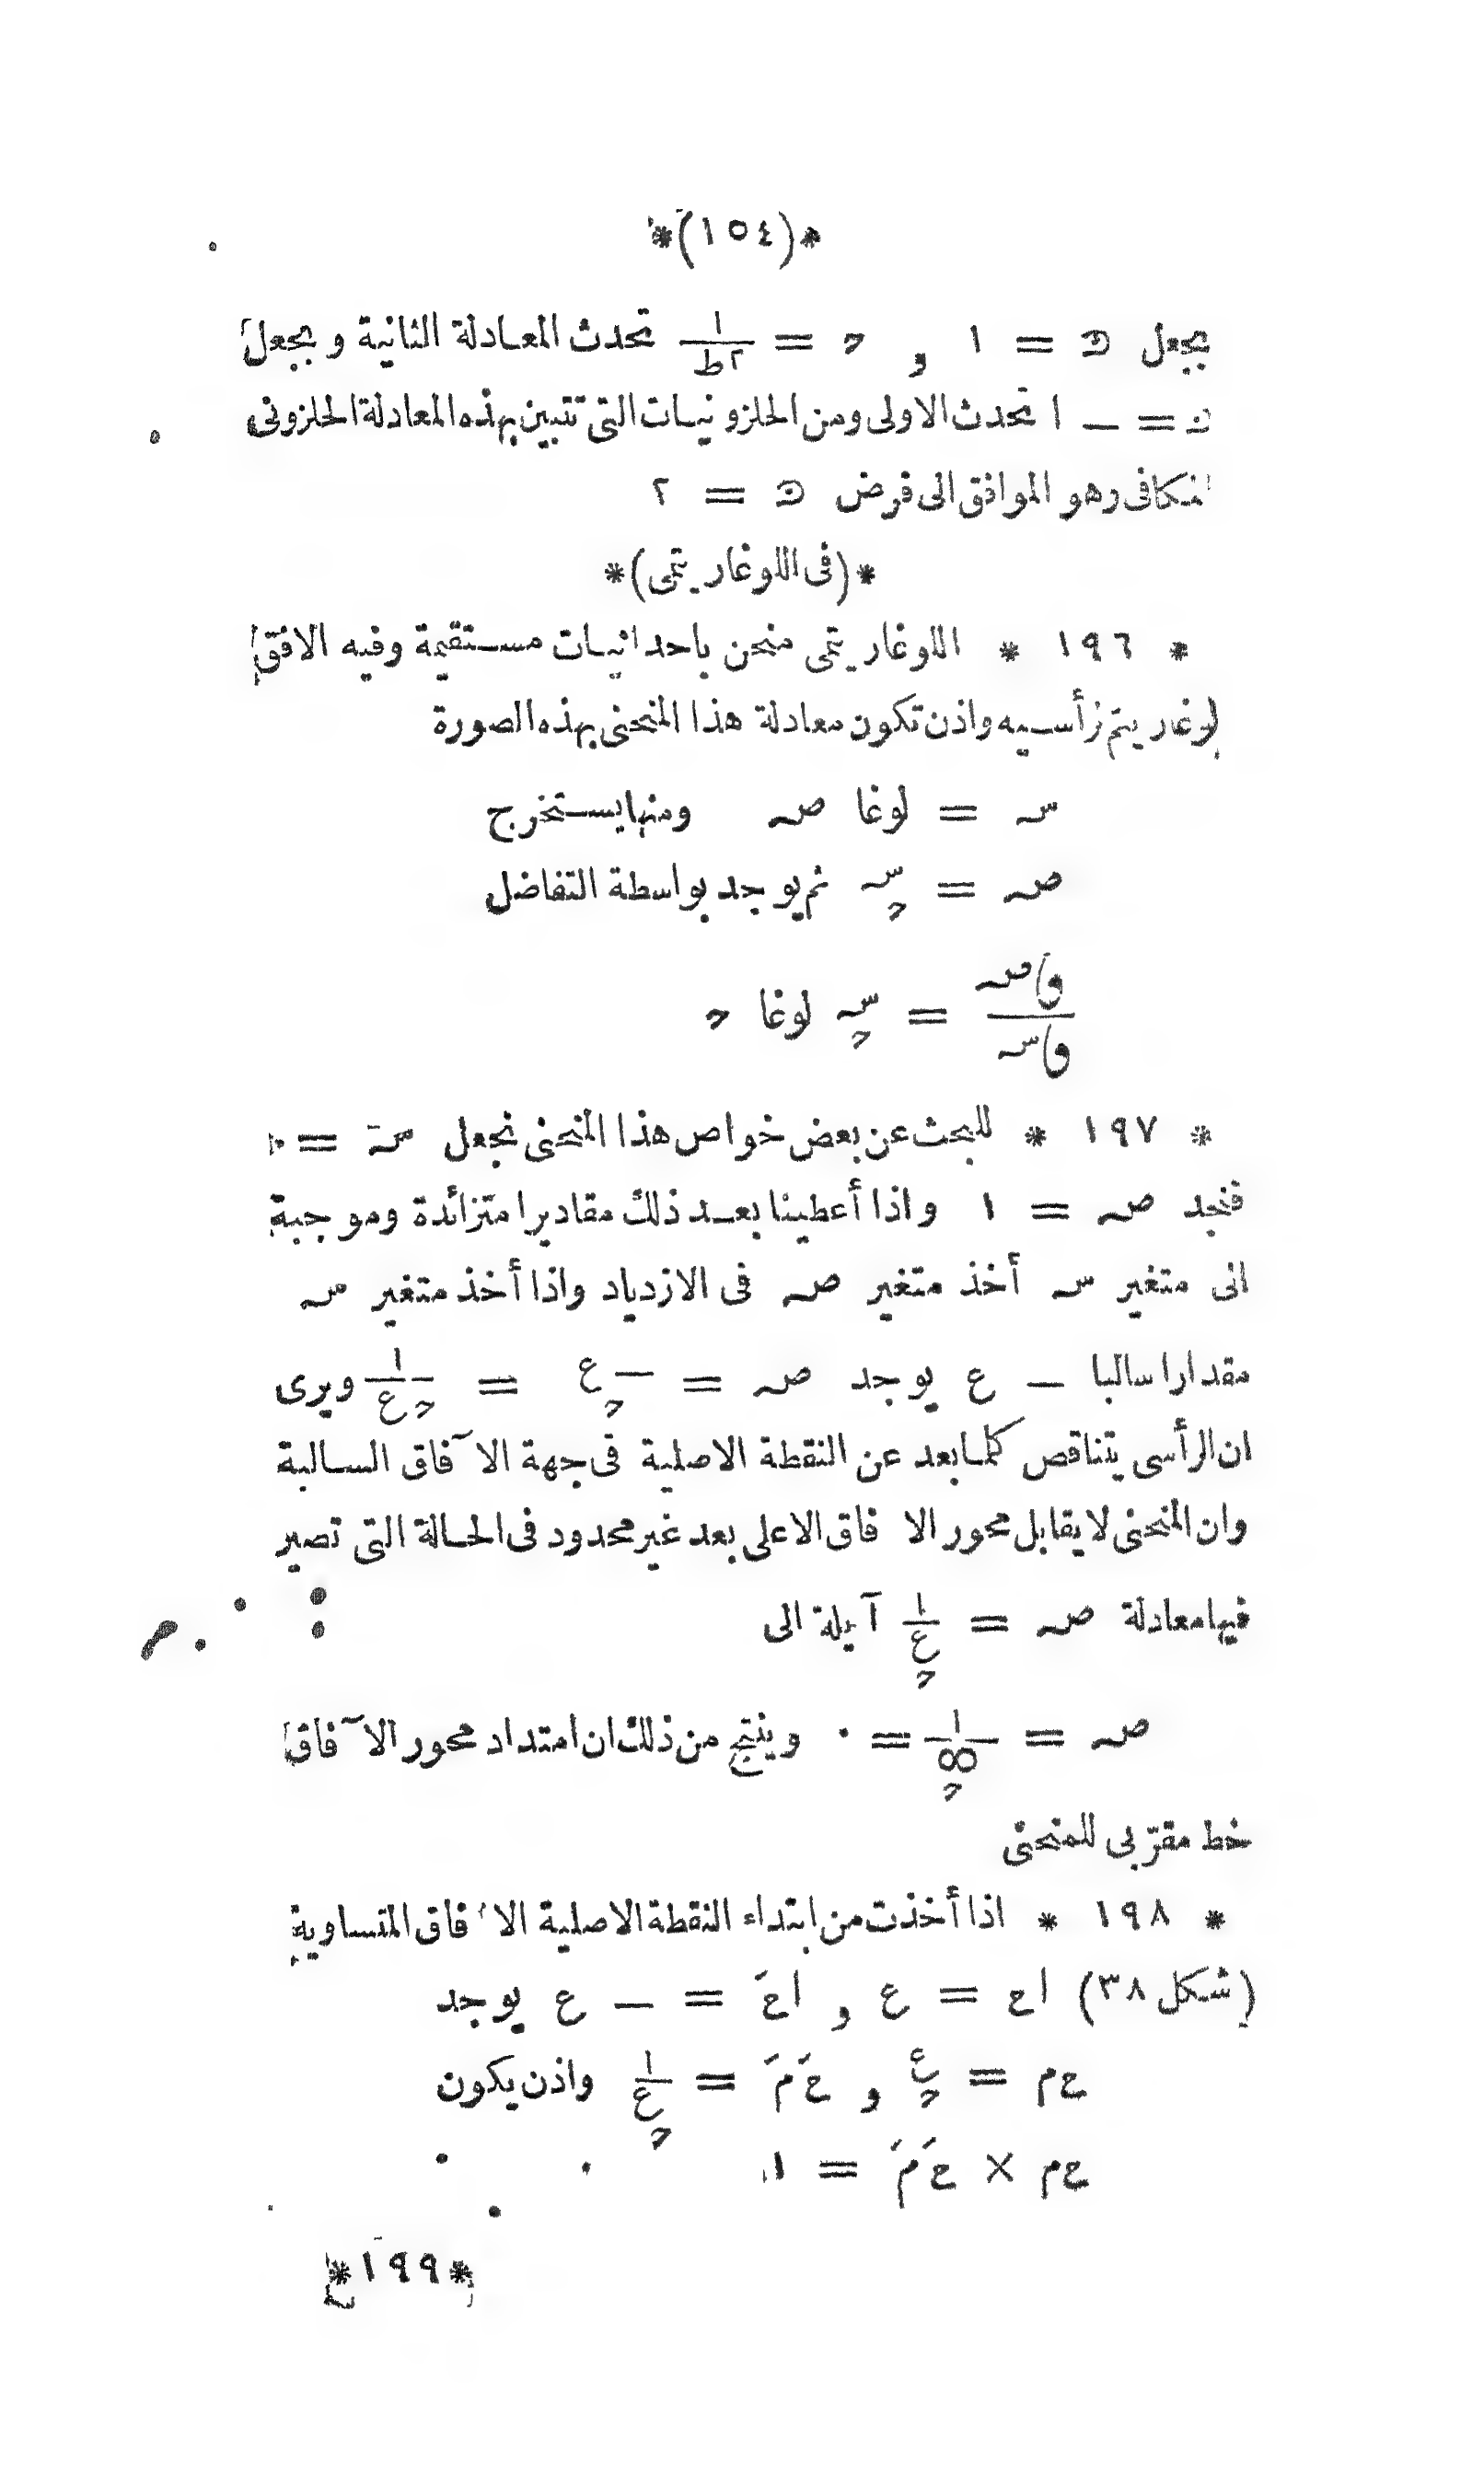 *(١٥٤)*
بجعل ن = ١ و ح = ١/٢ط تحدث المعادلة الثانية وبجعل
ن = — ١ تحدث الاولى ومن الحلزونيات التى تتبين بهذه المعادلة الحلزونى
المكافى وهو الموافق الى فرض ن = ٢
*(فى اللوغاريتمى)*
* ١٩٦ * اللوغاريتمى منحن باحداثيات مستقيمة وفيه الافق
لوغاريتم رأسيه واذن تكون معادلة هذا المنحنى بهذه الصورة
سہ = لوغا صہ ومنها يستخرج
صہ = حسہ ثم يوجد بواسطة التفاضل
فاصہ/فاسہ = حسہ لوغا ح
* ١٩٧ * للبحث عن بعض خواص هذا المنحنى نجعل سہ = ٠
فنجد صہ = ١ واذا أعطينا بعد ذلك مقاديرا متزائدة وموجبة
الى متغير سہ أخذ متغير صہ فى الازدياد واذا أخذ متغير سہ
مقدارا سالبا — ع يوجد صہ = ح^—ع = ١/ح^ع ويرى
ان الرأسى يتناقص كلما بعد عن النقطة الاصلية فى جهة الآفاق السالبة
وان المنحنى لا يقابل محور الافاق الا على بعد غير محدود فى الحالة التى تصير
فيها معادلة صہ = ١/ح^ع آيلة الى
صہ = ١/ح^∞ = ٠ وينتج من ذلك ان امتداد محور الآفاق
خط مقرّبى للمنحنى
* ١٩٨ * اذا أخذت من ابتداء النقطة الاصلية الآفاق المتساوية
(شكل ٣٨) اح = ع و احَ = — ع يوجد
حم = ح^ع و حَمَ = ١/ح^ع واذن يكون
حم × حَمَ = ١
*١٩٩*